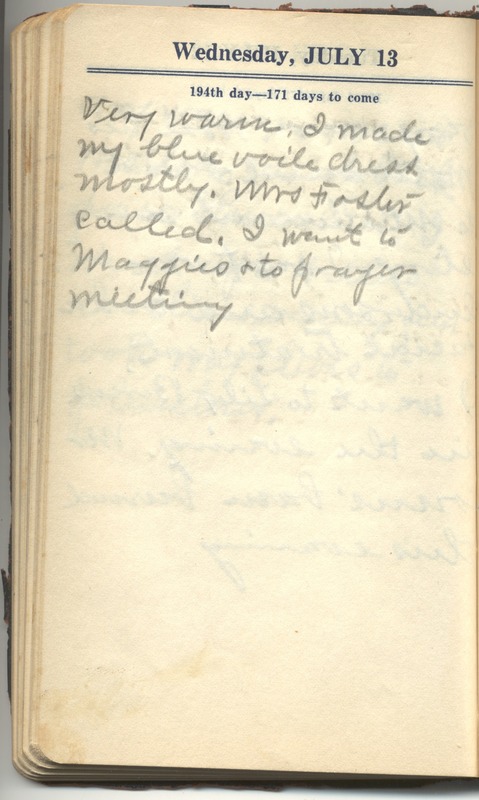 Wednesday, JULY 13
194th day—171 days to come
Very warm. I made
my blue voile dress
mostly. Mrs Foster
called. I went to
Maggies & to prayer
meeting